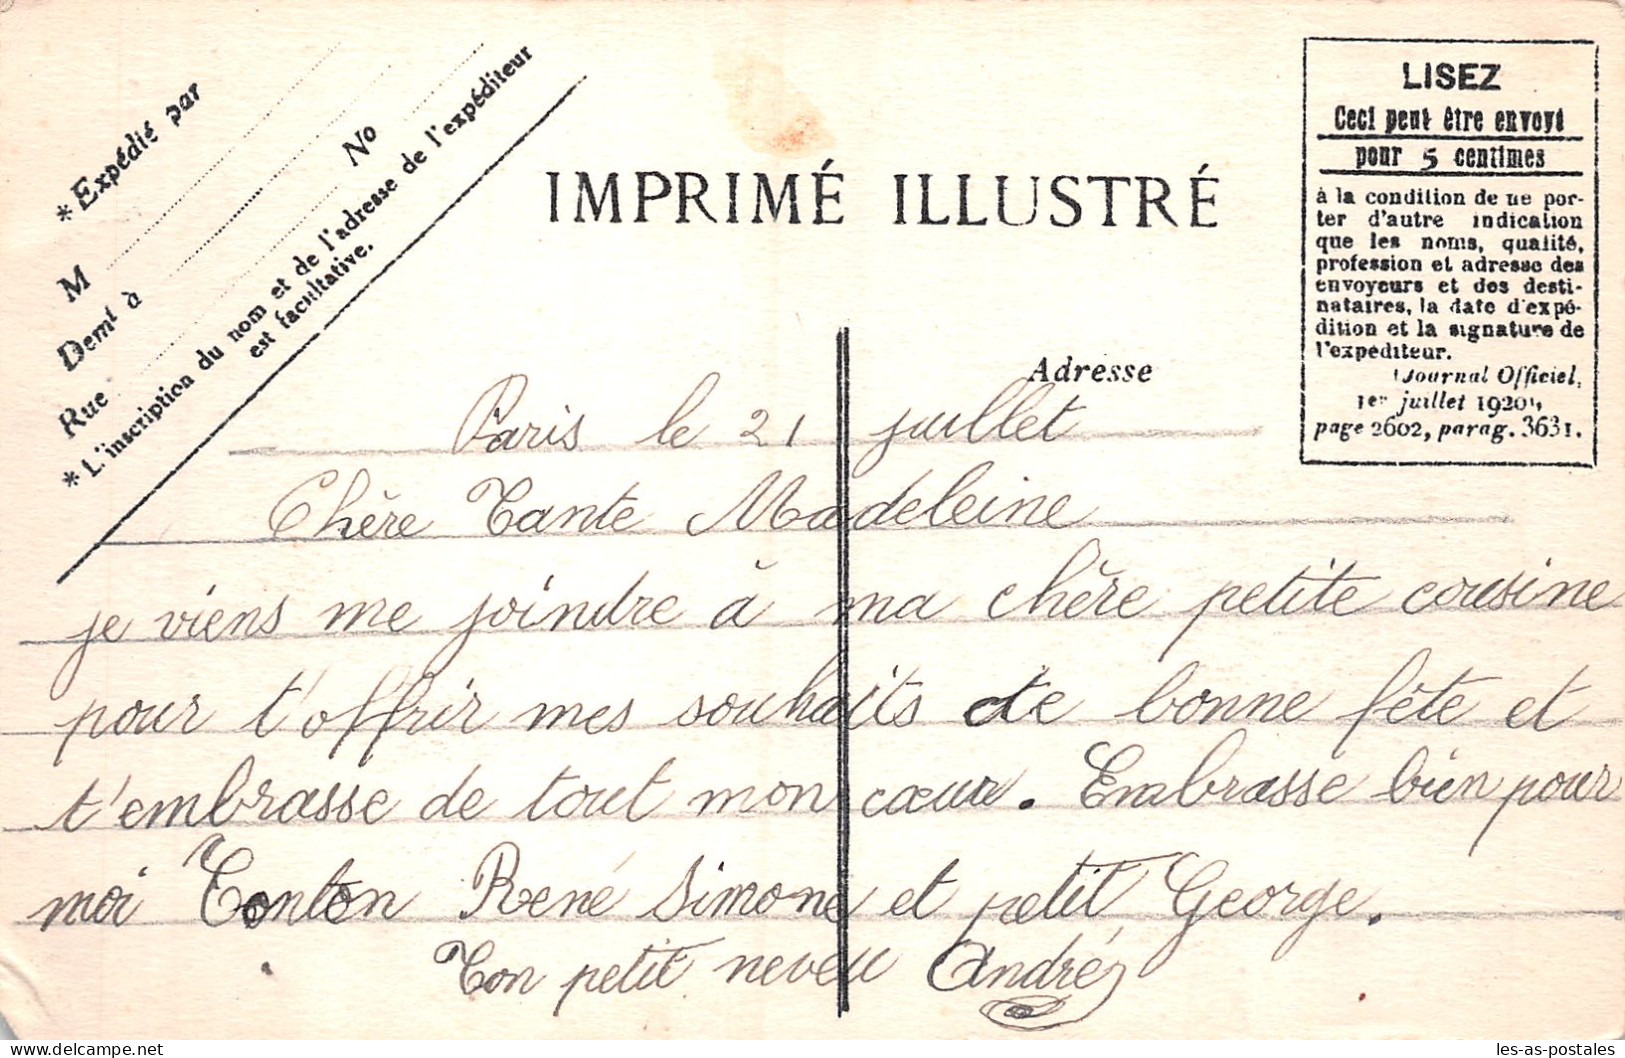 * Expédié par
M
Demt à
Rue
No
* L'inscription du nom et de l'adresse de l'expéditeur
est facultative.
IMPRIMÉ ILLUSTRÉ
LISEZ
Ceci peut être envoyé
pour 5 centimes
à la condition de ne por-
ter d'autre indication
que les noms, qualité,
profession et adresse des
envoyeurs et des desti-
nataires, la date d'expé-
dition et la signature de
l'expéditeur.
(Journal Officiel,
1er juillet 1920,
page 2602, parag. 3631.
Adresse
Paris le 21 juillet
Chère Tante Madeleine
je viens me joindre à ma chère petite cousine
pour t'offrir mes souhaits de bonne fête et
t'embrasse de tout mon cœur. Embrasse bien pour
moi Tonton René Simone et petit George.
Ton petit neveu André
les-as-postales
www.delcampe.net